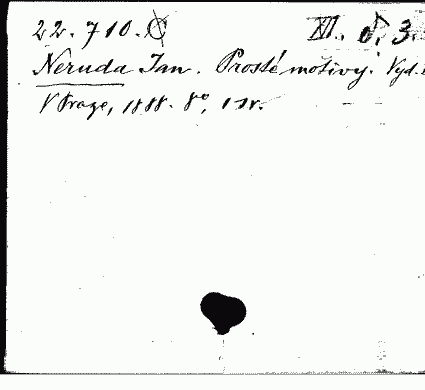 22.710. XII. d. 3.
Neruda Jan. Prosté motivy. Vyd.
V Praze, 1888. 8°,